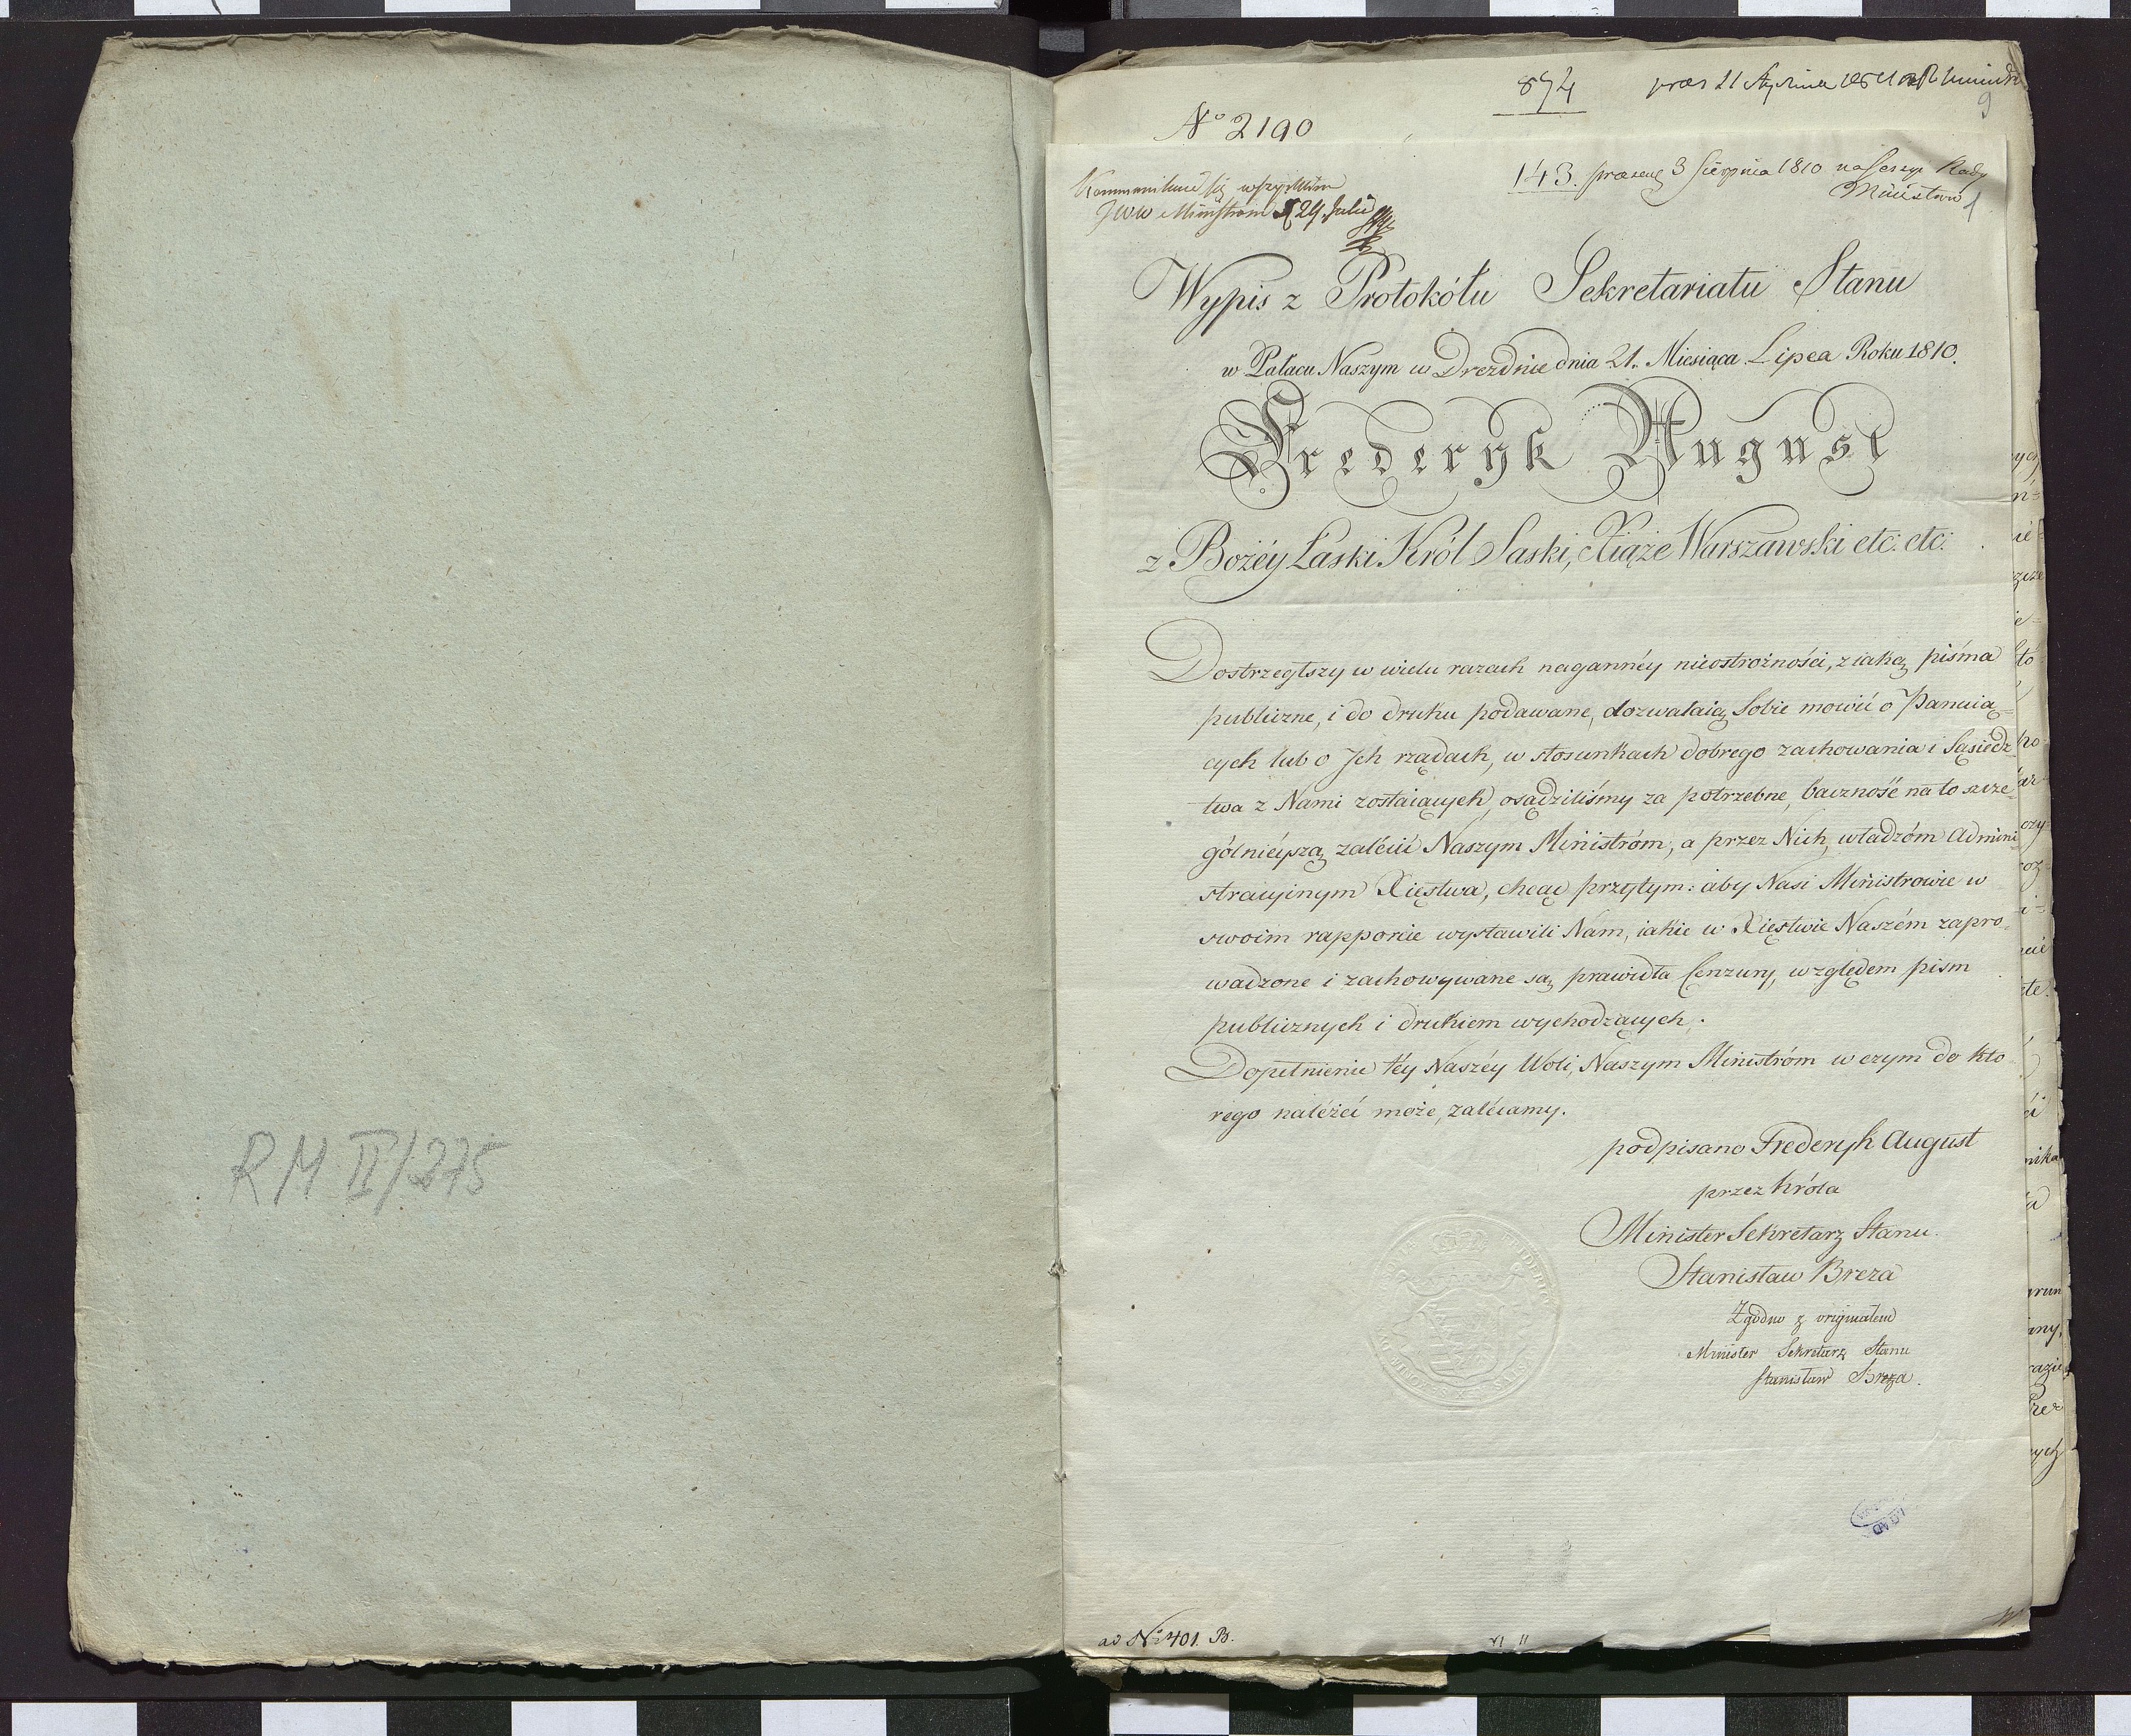 RM II/275
874
9
Nº 2190
Kommunikuie się wszystkim
JWW Ministrom d 29 Julii
143. praesent 3 Sierpnia 1810 na Sessyi Rady
Ministrów
1
Wypis z Protokółu Sekretariatu Stanu
w Pałacu Naszym w Dreznie dnia 21. Miesiąca Lipca Roku 1810.
Frederyk August
z Bożéy Łaski Król Saski, Xiąże Warszawski etc: etc:
Dostrzegłszy w wielu razach nagannéy nieostrożności, z iaką pisma
publiczne, i do druku podawane, dozwalaią Sobie mowić o Panuią=
cych lub o Ich rządach, w stosunkach dobrego zachowania i Sąsiedz=
twa z Nami zostaiących, osądziliśmy za potrzebne, baczność na to szcze=
gólnieyszą zalécić Naszym Ministróm, a przez Nich, władzóm Admini=
stracyinym Xięstwa, chcąc przytym: aby Nasi Ministrowie w
swoim rapporcie wystawili Nam, iakie w Xięstwie Naszém zapro=
wadzone i zachowywane są prawidła Cenzury, względem pism
publicznych i drukiem wychodzących.
Dopełnienie téy Naszéy Woli, Naszym Ministróm w czym do kto
rego należéć może, zalécamy.
podpisano Frederyk August
przez Króla
Minister Sekretarz Stanu.
Stanisław Breza
Zgodno z originałem
Minister Sekretarz Stanu
Stanisław Breza.
ad Nº 401. B.